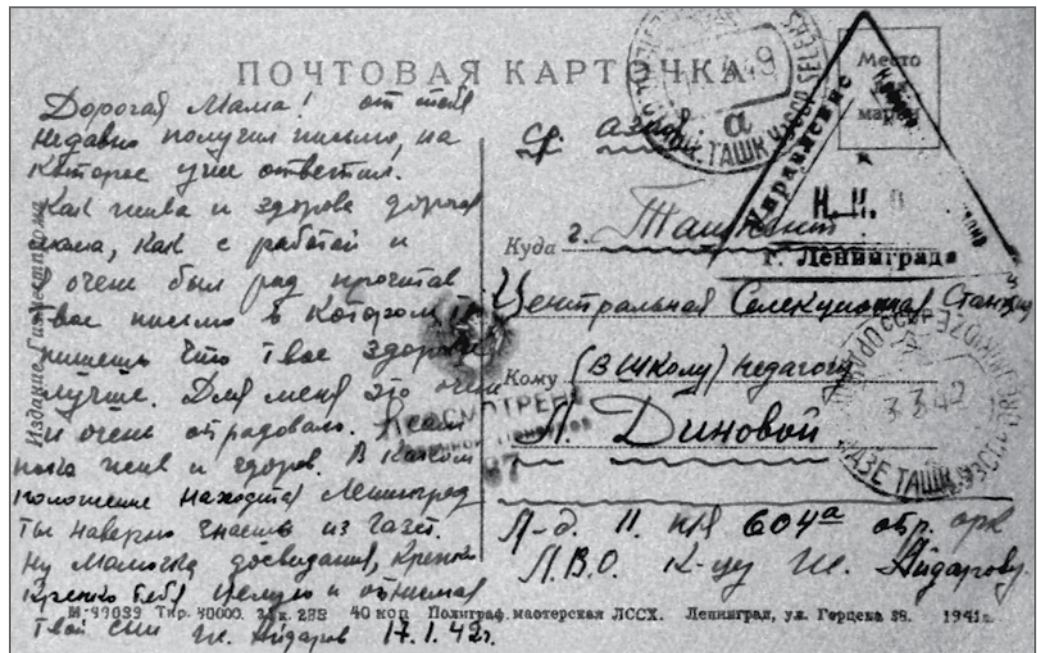 ПОЧТОВАЯ КАРТОЧКА
Дорогая Мама! от тебя
недавно получил письмо, на
которое уже ответил.
Как жива и здорова дорогая
мама, как с работой и
Я очень был рад прочитав
твое письмо в котором
пишешь что твое здоровье
лучше. Для меня это очень
и очень отрадовало. Я сам
пока жив и здоров. В каком
положение находится Ленинград
ты наверно знаешь из газет.
Ну мамочка досвидания, крепко
крепко тебя целую и обнимаю
Твой сын Ж. Айдаров 17.1.42г.
Издание Гизместпрома
Место
марки
Управление
Н.К.
г. Ленинграда
ТАШК. УЗССР
ср. азия.
Куда г. Ташкент
Центральная Селекционная Станция
Кому (в школу) педагогу
Л. Диновой
ПРОСМОТРЕНО
Военной Цензурой
87
3 3 42
Л-д. 11. п/я 604а отр. орк
Л.В.О. к-цу Ж. Айдарову.
М-99039 Тир. 40000. Зак. 288 40 коп Полиграф. мастерская ЛССХ. Ленинград, ул. Герцена 38. 1941г.